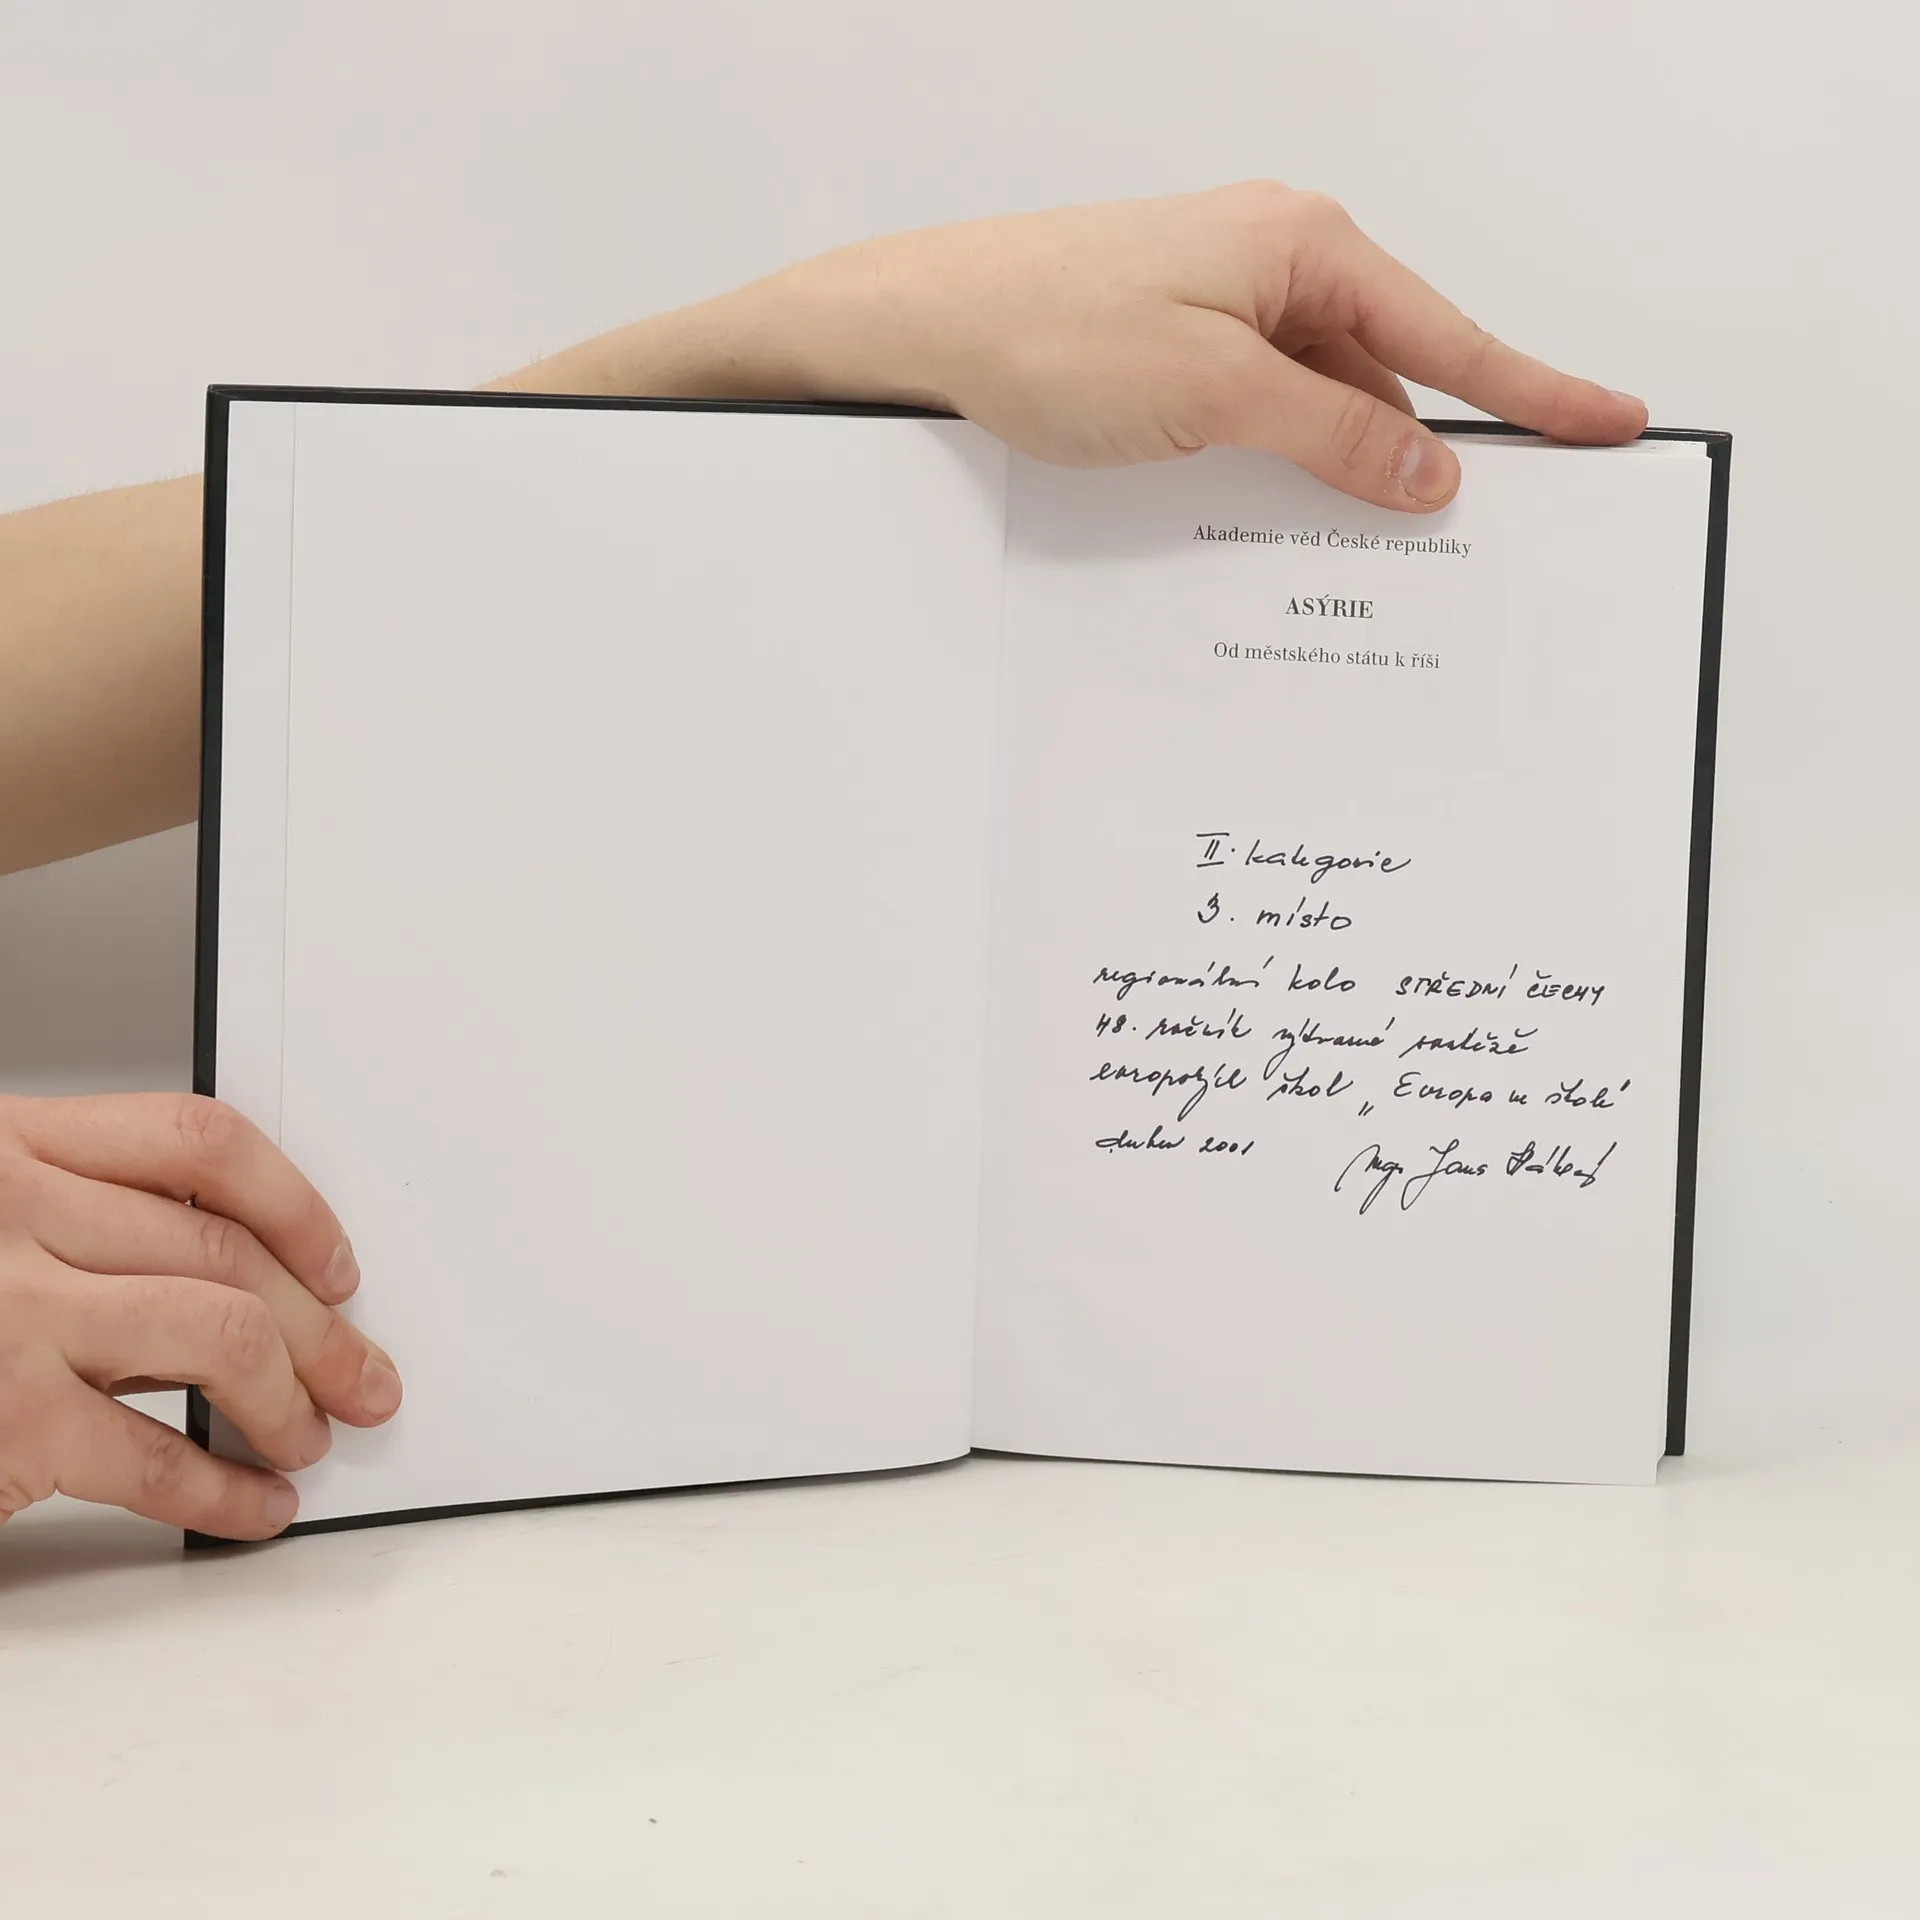 Akademie věd České republiky
ASÝRIE
Od městského státu k říši
II. kategorie
3. místo
regionální kolo STŘEDNÍ ČECHY
48. ročník výtvarné soutěže
evropských škol „Evropa ve škole"
duben 2001 Mgr. Jana